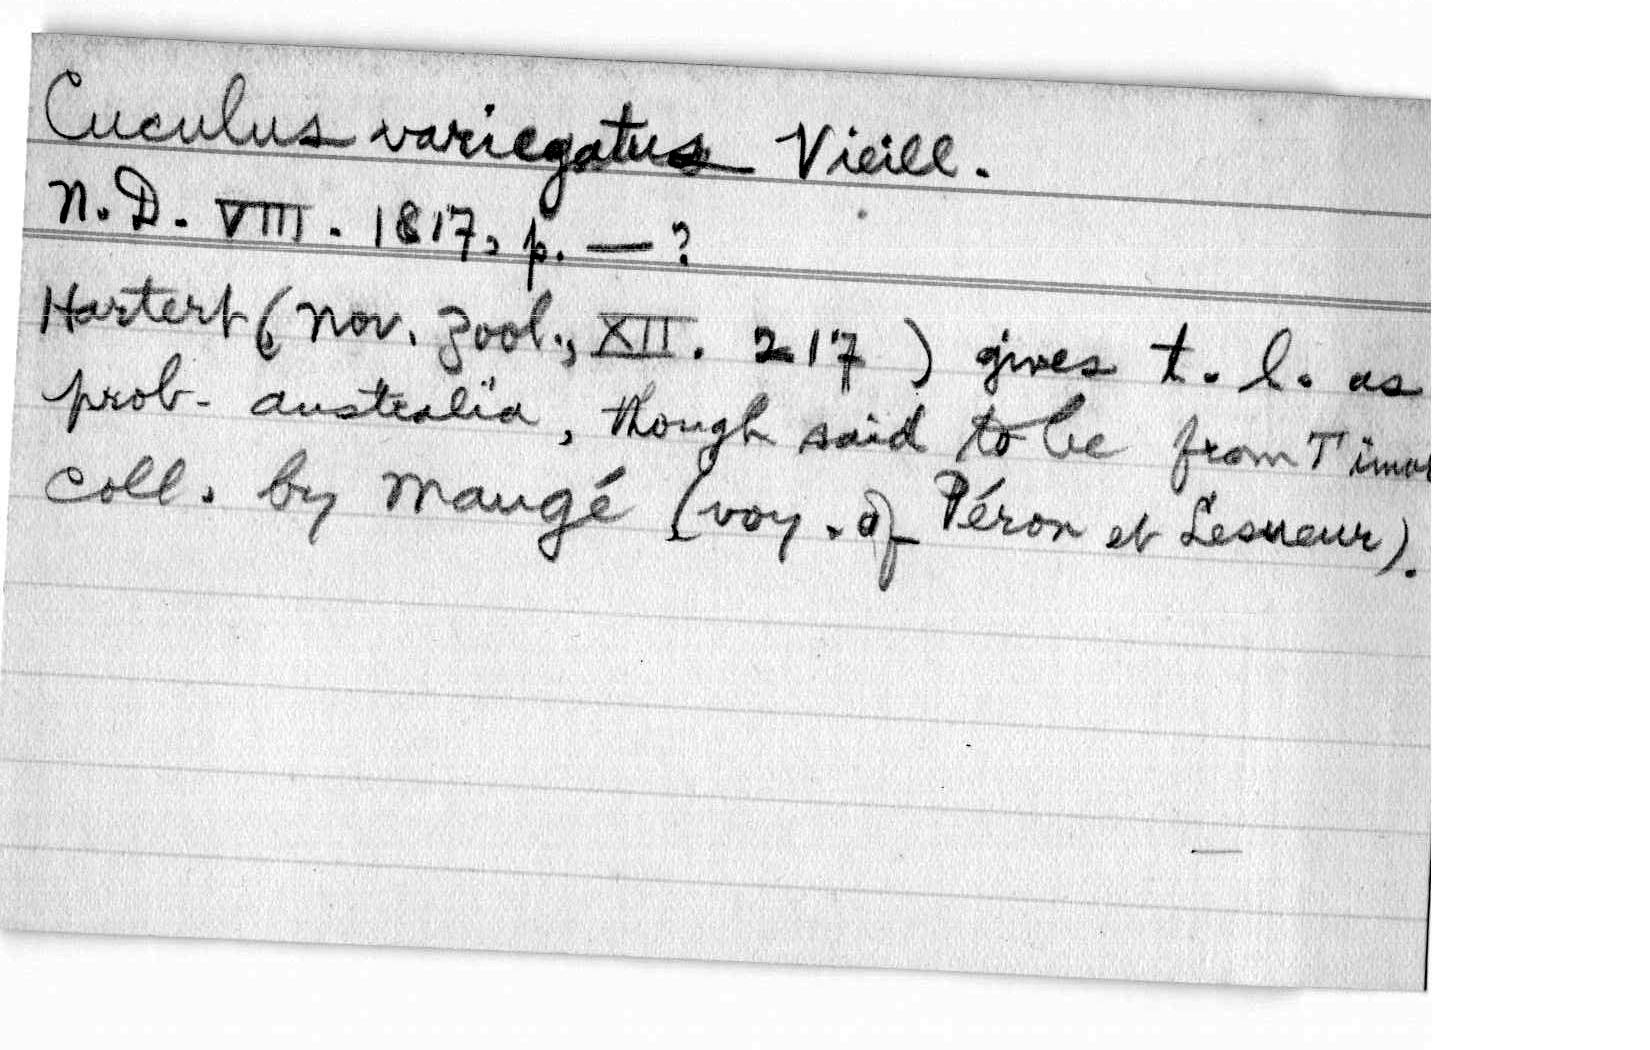 Cuculus variegatus Vieill.
N.D. VIII. 1817, p. — ?
Hartert (Nov. Zool., XII. 217) gives t. l. as
prob. Australia, though said to be from Timor
coll. by Maugé (voy. of Péron et Lesueur).